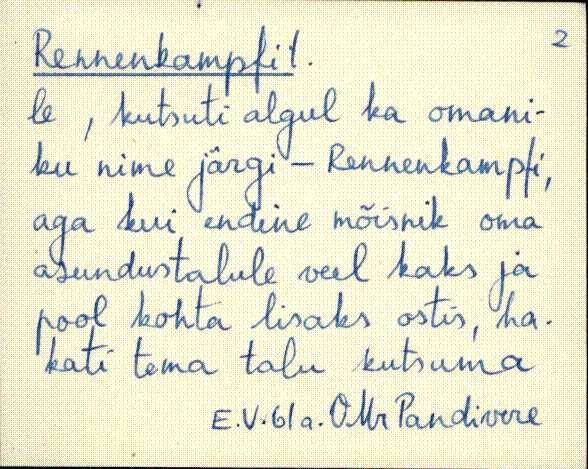 Rennenkampfi t. 2
le, kutsuti algul ka omani-
ku nime järgi – Rennenkampfi,
aga kui endine mõisnik oma
asundustalule veel kaks ja
pool kohta lisaks ostis, ha-
kati tema talu kutsuma
E.V. 61a. O. Mr Pandivere